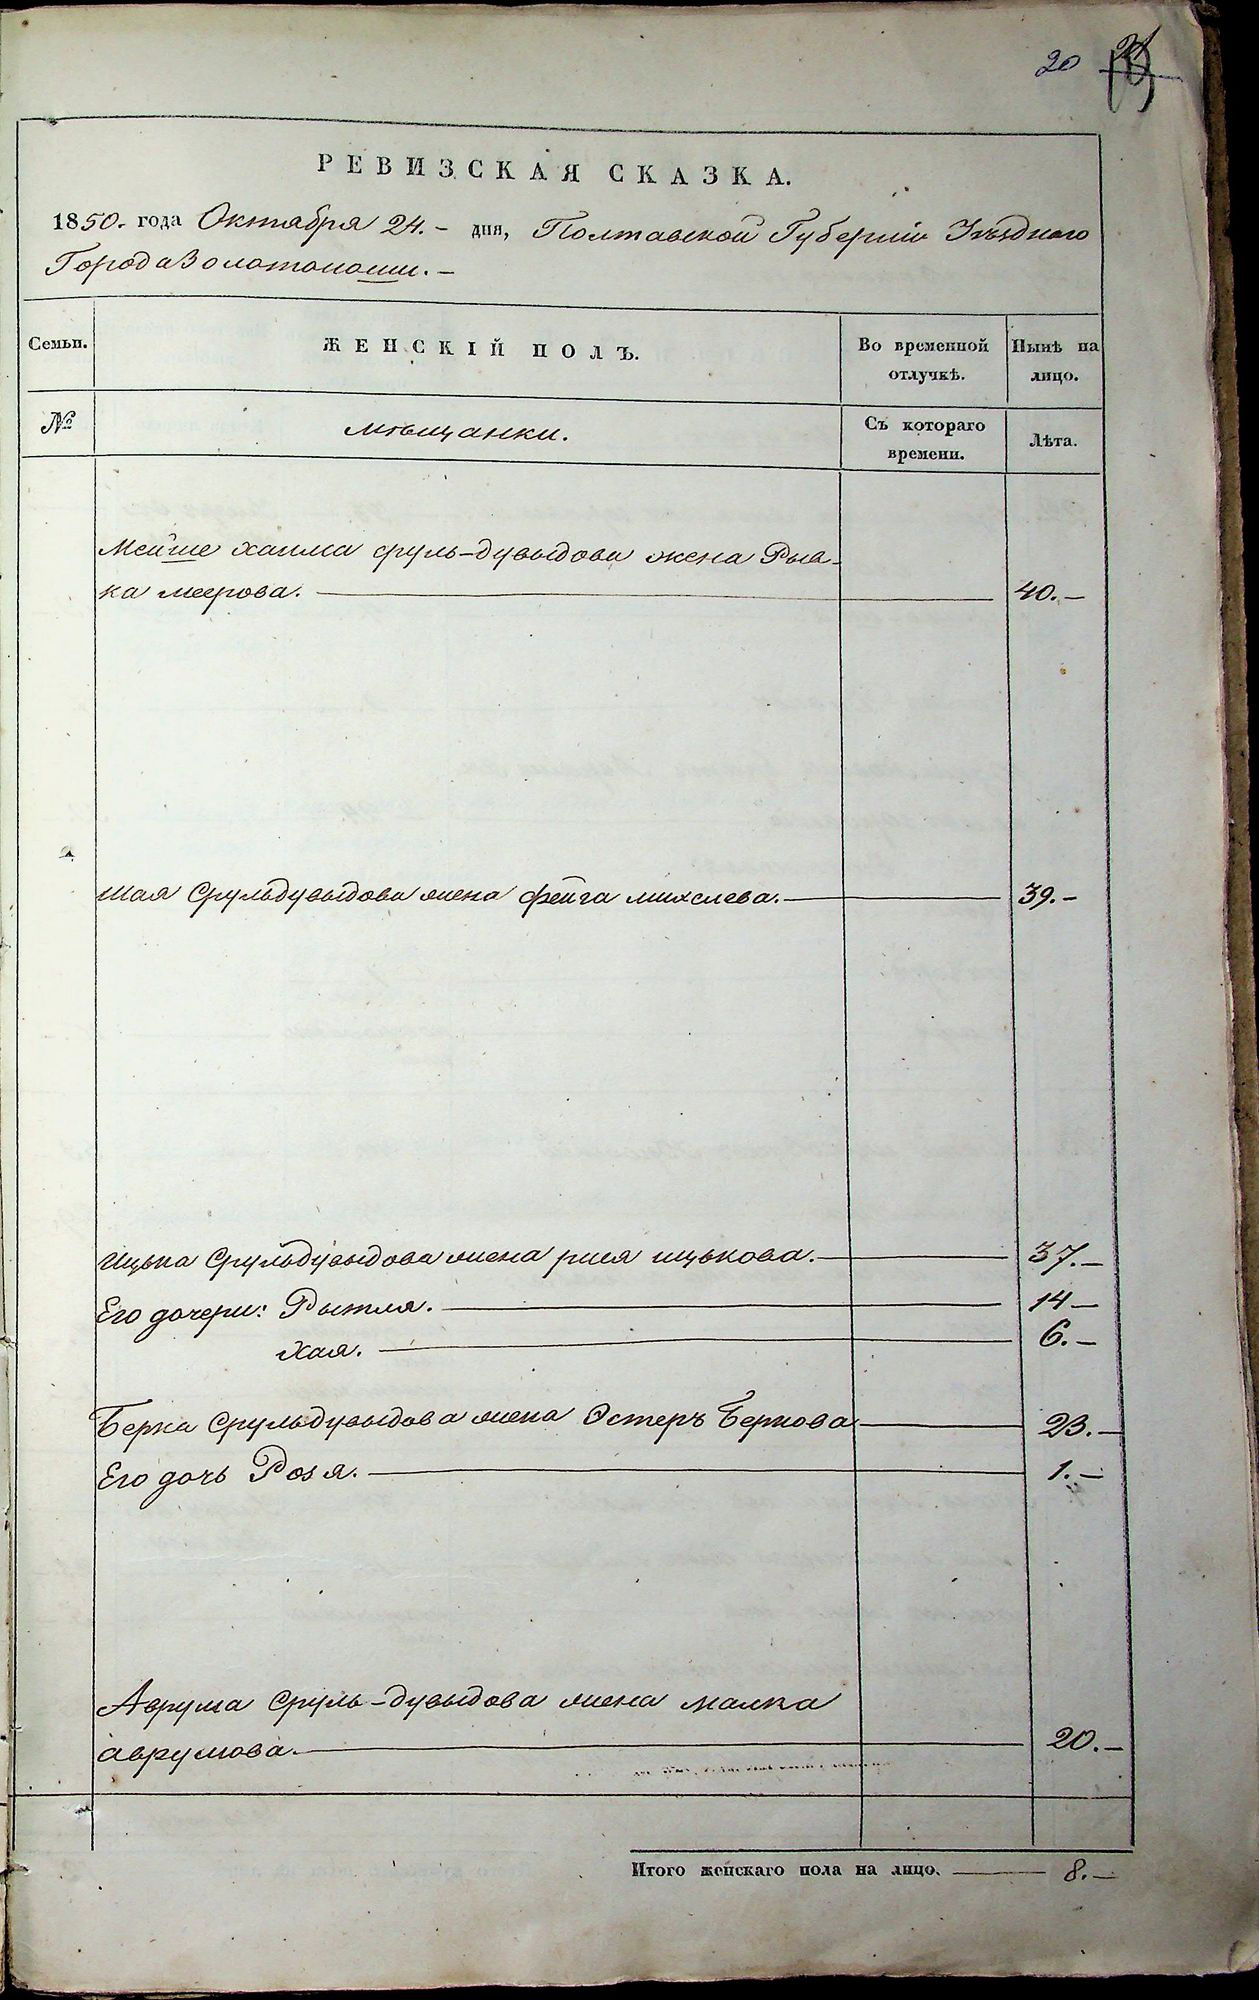 20
РЕВИЗСКАЯ СКАЗКА.
1850. года Октября 24.- дня, Полтавской Губернiи Уѣзднаго
Города Золотоноши.-
Семьи.
ЖЕНСКIЙ ПОЛЪ.
Во временной отлучкѣ.
Нынѣ на лицо.
№
мѣщанки.
Съ котораго времени.
Лѣта.
Мейше хаима сруль-дувыдова жена Рыв-
ка меерова. 40.-
Шая Срульдувыдова жена фейга михелева. 39.-
Ицька Срульдувыдова жена рися ицькова. 37.-
Его дочери: Рытля. 14-
хая. 6.-
Берка Срульдувыдова жена Эстеръ Беркова 23.-
Его дочь Розя. 1.-
Аврума Сруль-дувыдова жена малка
аврумова. 20.-
Итого женскаго пола на лицо. 8.-